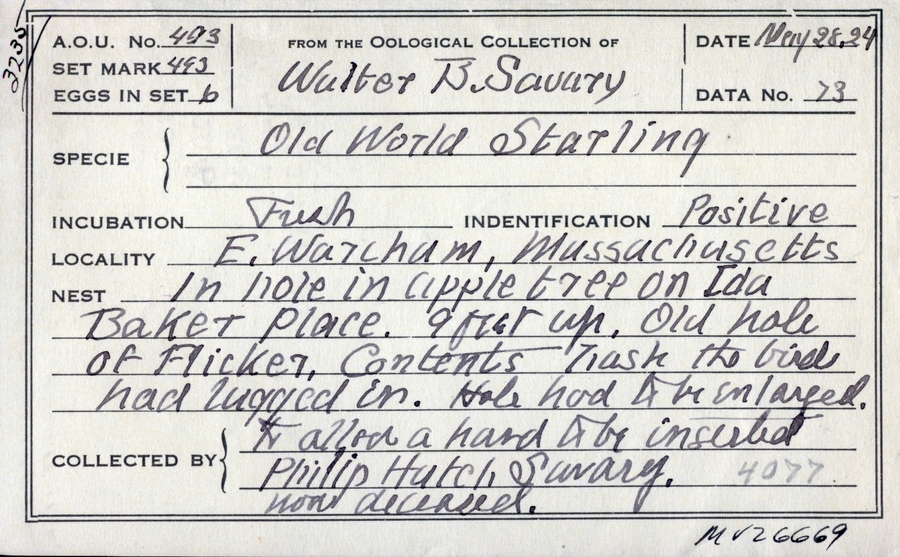 3235
A.O.U. No. 493
SET MARK 493
EGGS IN SET 6
FROM THE OOLOGICAL COLLECTION OF
Walter B. Savary
DATE May 28, 24
DATA No. 73
SPECIE Old World Starling
INCUBATION Fresh INDENTIFICATION Positive
LOCALITY E. Wareham, Massachusetts
NEST In hole in apple tree on Ida
Baker Place. 9 feet up. Old hole
of Flicker. Contents Trash the birds
had lugged in. Hole had to be enlarged.
to allow a hand to be inserted
COLLECTED BY Philip Hatch Savary. 4077
now deceased.
MVZ6669